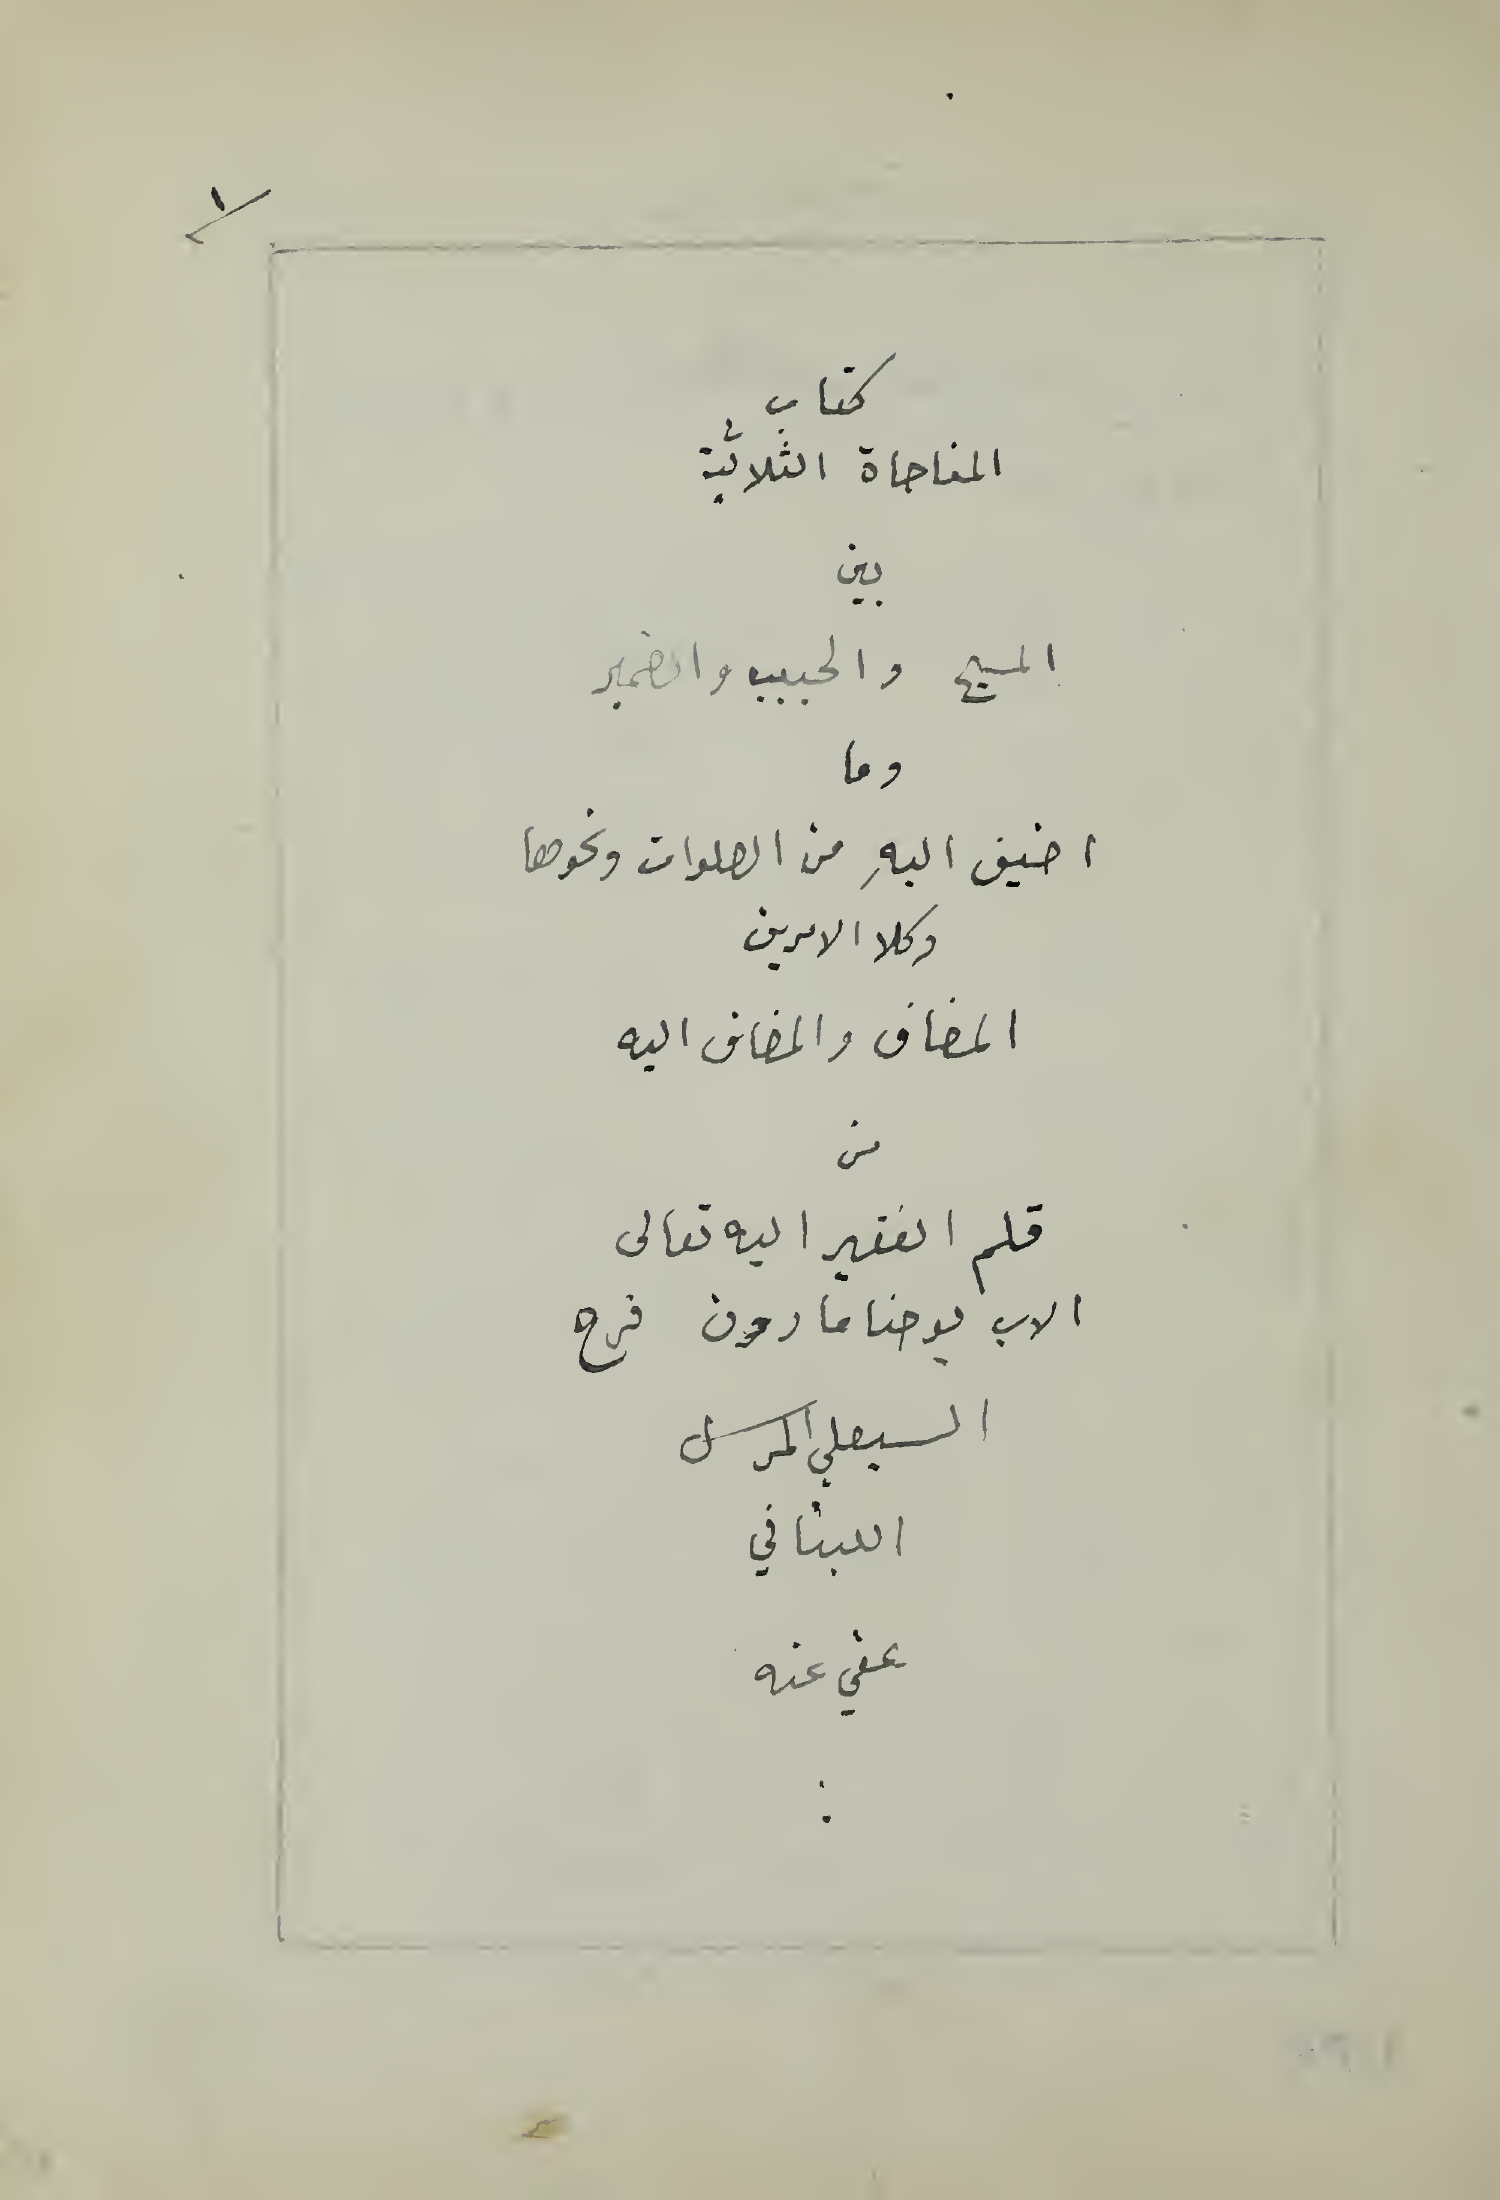 ١
كتاب
المناجاة الثلاثية
بين
المسيح والحبيب والضمير
وما
اضيف اليهِ من الصلوات ونحوها
وكلا الامرين
المضاف والمضاف اليه
من
قلم الفقير اليه تعالى
الاب يوحنا مارون فرح
السبعلي المرسل
اللبناني
عفي عنه